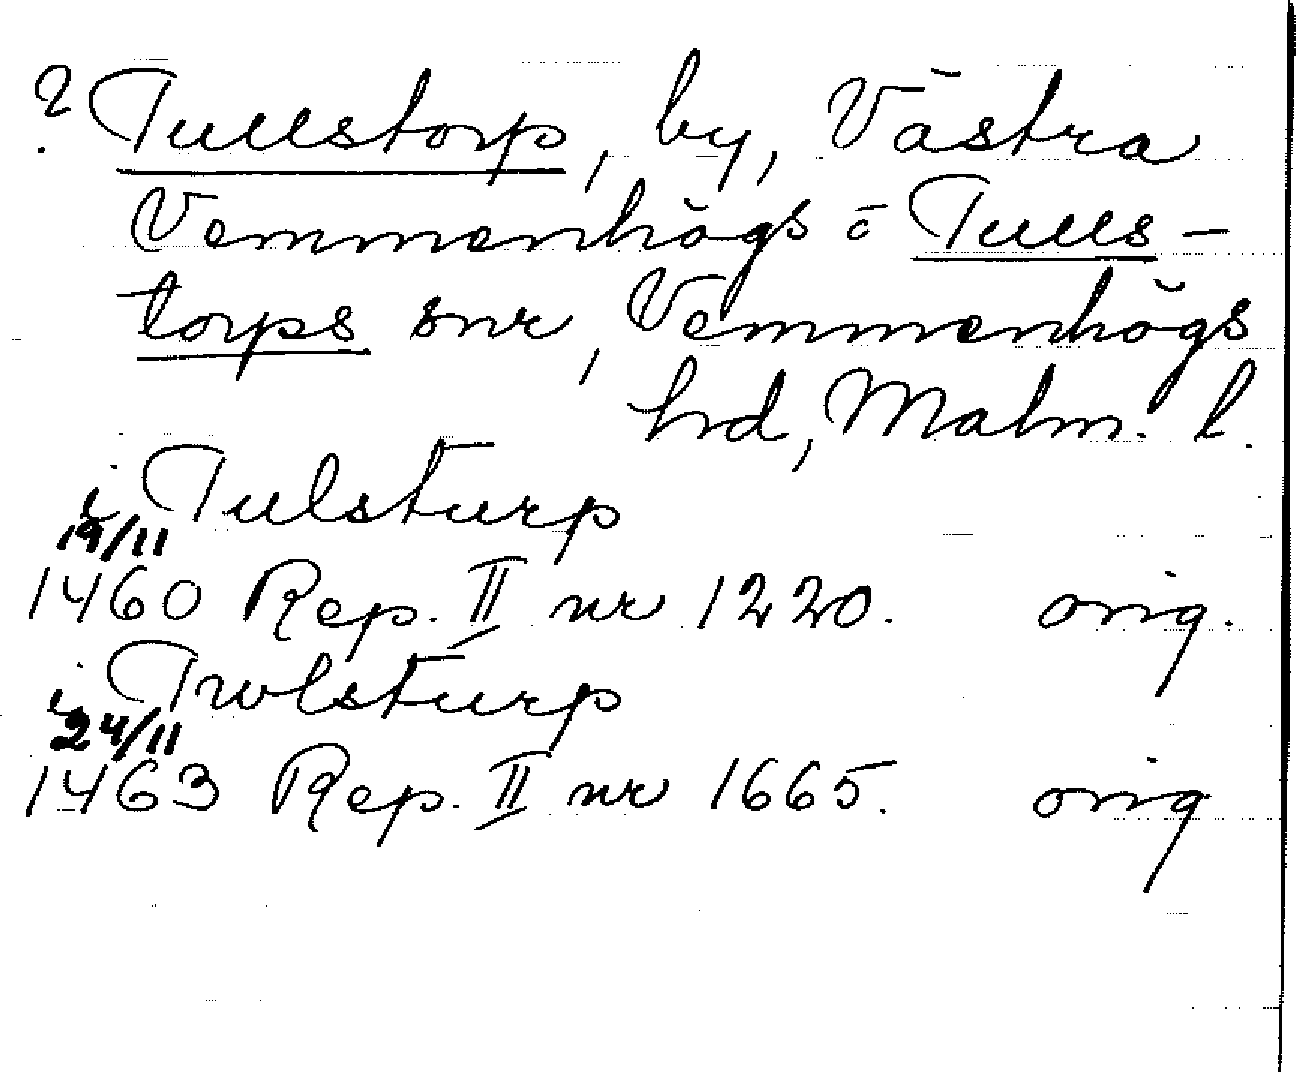 ? Tullstorp, by, Västra
Vemmenhögs o Tulls-
torps snr, Vemmenhögs
hd, Malm. l.
i Tulsturp
19/11
1460 Rep. II nr 1220. orig.
i Twlsturp
24/11
1463 Rep. II nr 1665. orig